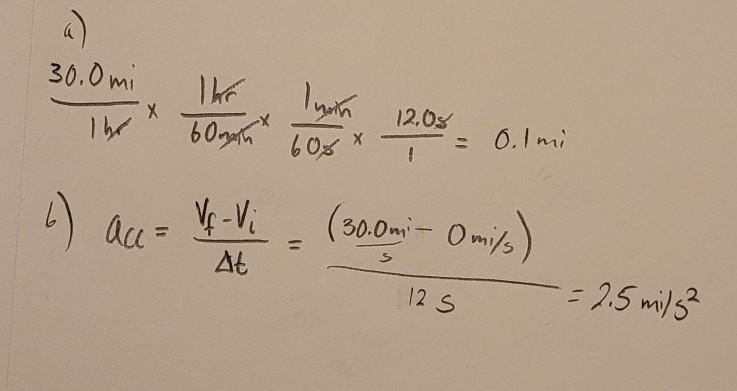 a)
30.0 mi / 1 hr × 1 hr / 60 min × 1 min / 60 s × 12.0 s / 1 = 0.1 mi
b) acc = Vf - Vi / Δt = (30.0 mi/s - 0 mi/s) / 12 s = 2.5 mi/s²